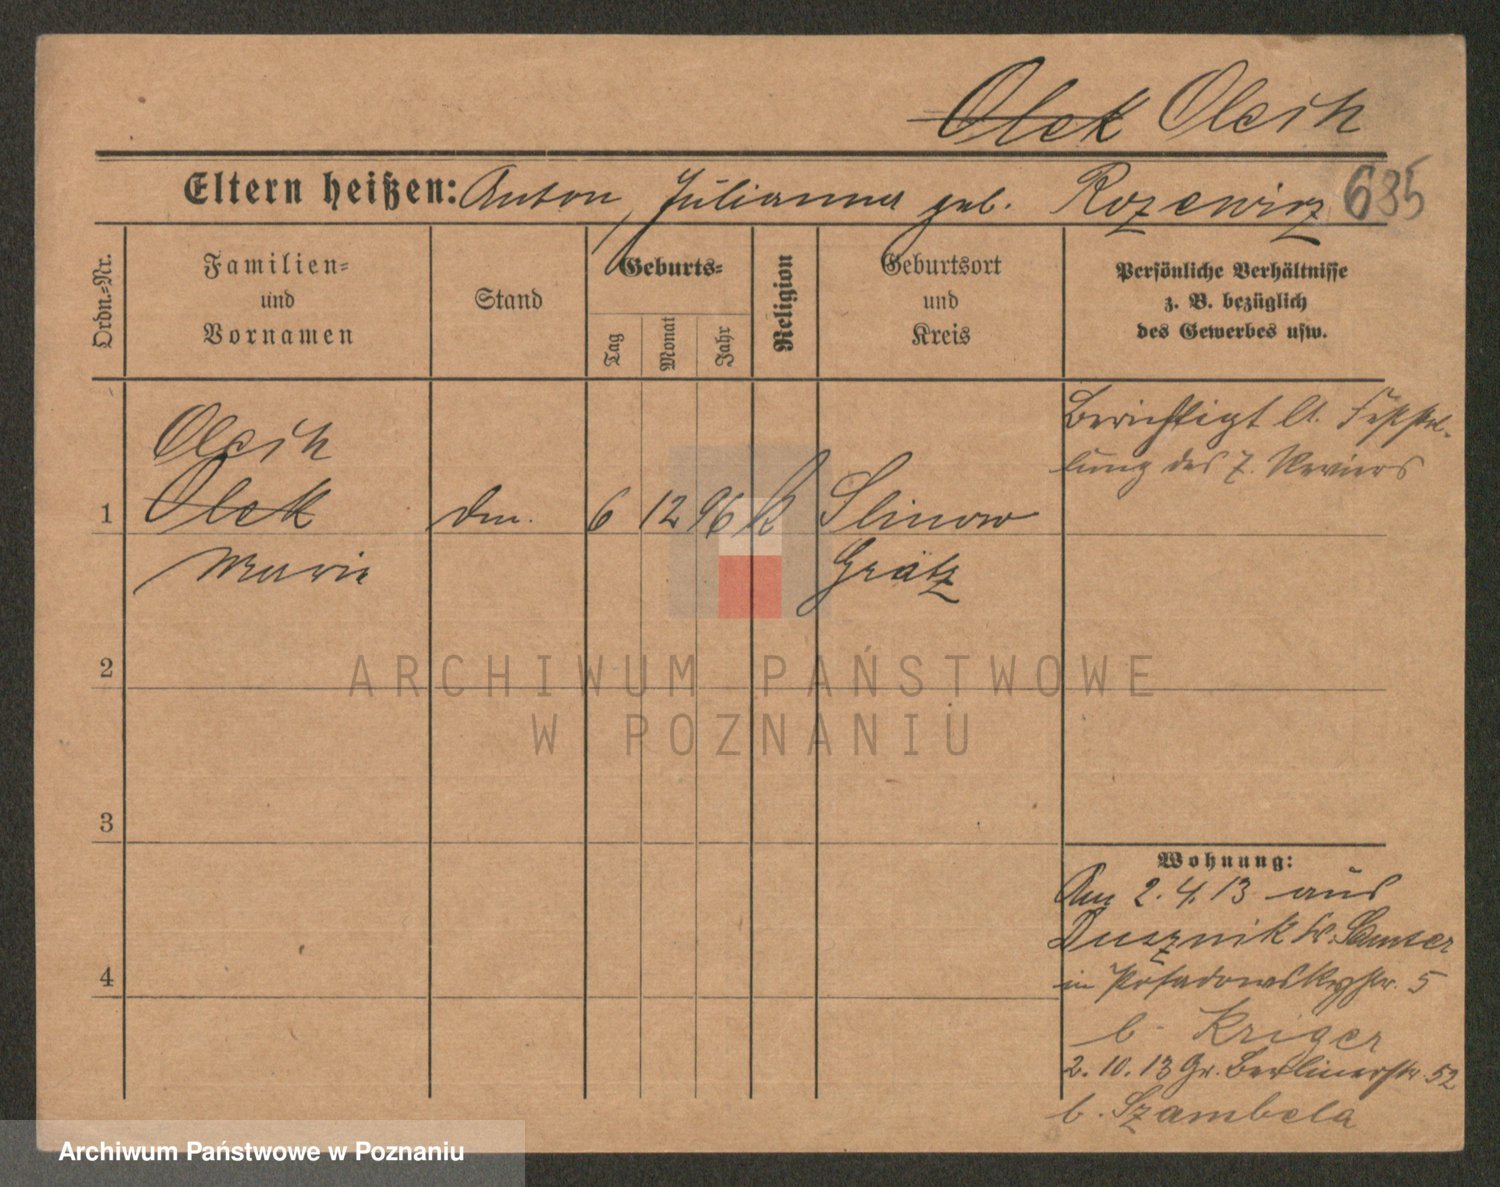 Olek Olesch
Eltern heißen: Anton, Julianna geb. Rozewicz 685
Ordn.-Nr.
Familien-
und
Vornamen
Stand
Geburts-
Tag
Monat
Jahr
Religion
Geburtsort
und
Kreis
Persönliche Verhältnisse
z. B. bezüglich
des Gewerbes usw.
Berichtigt lt. Feststel-
lung des 7. Reviers
Olesch
1 Olek
Marie
6 12 96 k
Slinow
Grätz
2
3
4
Wohnung:
Am 2.4.13 aus
Dusznik Kr. Samter
in Posadowskystr. 5
b. Kriger
2.10.13 Gr. Berlinerstr. 52
b. Szambela
ARCHIWUM PAŃSTWOWE
W POZNANIU
Archiwum Państwowe w Poznaniu